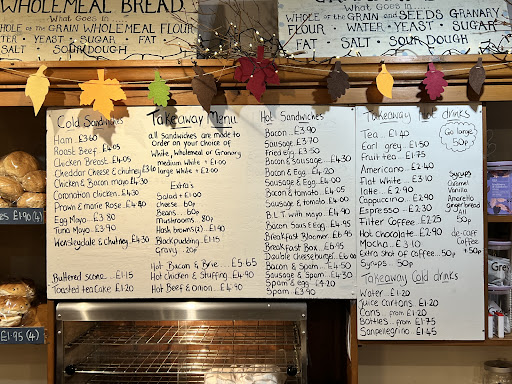 WHOLEMEAL BREAD
What Goes in
WHOLE of the GRAIN WHOLEMEAL FLOUR
WATER · YEAST · SUGAR
FAT · SALT
SOURDOUGH
What Goes in
WHOLE of the GRAIN and SEEDS GRANARY
FLOUR · WATER · YEAST · SUGAR
FAT · SALT · SOUR DOUGH
Cold Sandwiches
Ham £3.60
Roast Beef £4.05
Chicken Breast £4.05
Cheddar Cheese & chutney £4.10
Chicken & Bacon mayo £4.30
Coronation Chicken £4.30
Prawn & marie Rose £4.80
Egg Mayo £3.80
Tuna Mayo £3.90
Wensleydale & chutney £4.30
Buttered scone £1.15
Toasted tea Cake £1.20
Takeaway Menu
all sandwiches are made to
Order on your choice of
White, Wholemeal or Granary
medium White + £1.00
large White + £2.00
Extra's
Salad + £1.00
cheese 60p
Beans 60p
Mushrooms 80p
Hash browns (2) £1.90
Black pudding £1.15
Gravy 20p
Hot Bacon & Brie £5.65
Hot Chicken & Stuffing £4.90
Hot Beef & onion £4.90
Hot Sandwiches
Bacon £3.90
Sausage £3.70
Fried Egg £3.50
Bacon & Sausage £4.30
Bacon & Egg £4.20
Sausage & Egg £4.00
Bacon & tomato £4.05
Sausage & tomato £4.00
B.L.T with mayo £4.90
Bacon Saus & Egg £4.95
Breakfast Bloomer £6.95
Breakfast Box £6.95
Double Cheeseburger £6.00
Bacon & Spam £4.50
Sausage & Spam £4.30
Spam & egg £4.20
Spam £3.90
Takeaway Hot drinks
Tea £1.40
Earl grey £1.50
Fruit tea £1.75
Americano £2.40
Flat White £3.10
Latte £2.90
Cappuccino £2.90
Espresso £2.30
Filter Coffee £2.25
Hot Chocolate £2.90
Mocha £3.10
Extra shot of Coffee 50p
Syrups 50p
Go large
50p
Syrups
Caramel
Vanilla
Amaretto
Gingerbread
all
50p
de-caff
Coffee
+ 50p
Takeaway Cold drinks
Water £1.20
Juice Cartons £1.20
Cans from £1.20
Bottles from £1.75
Sanpellegrino £1.45
£1.90 (4)
£1.95 (4)